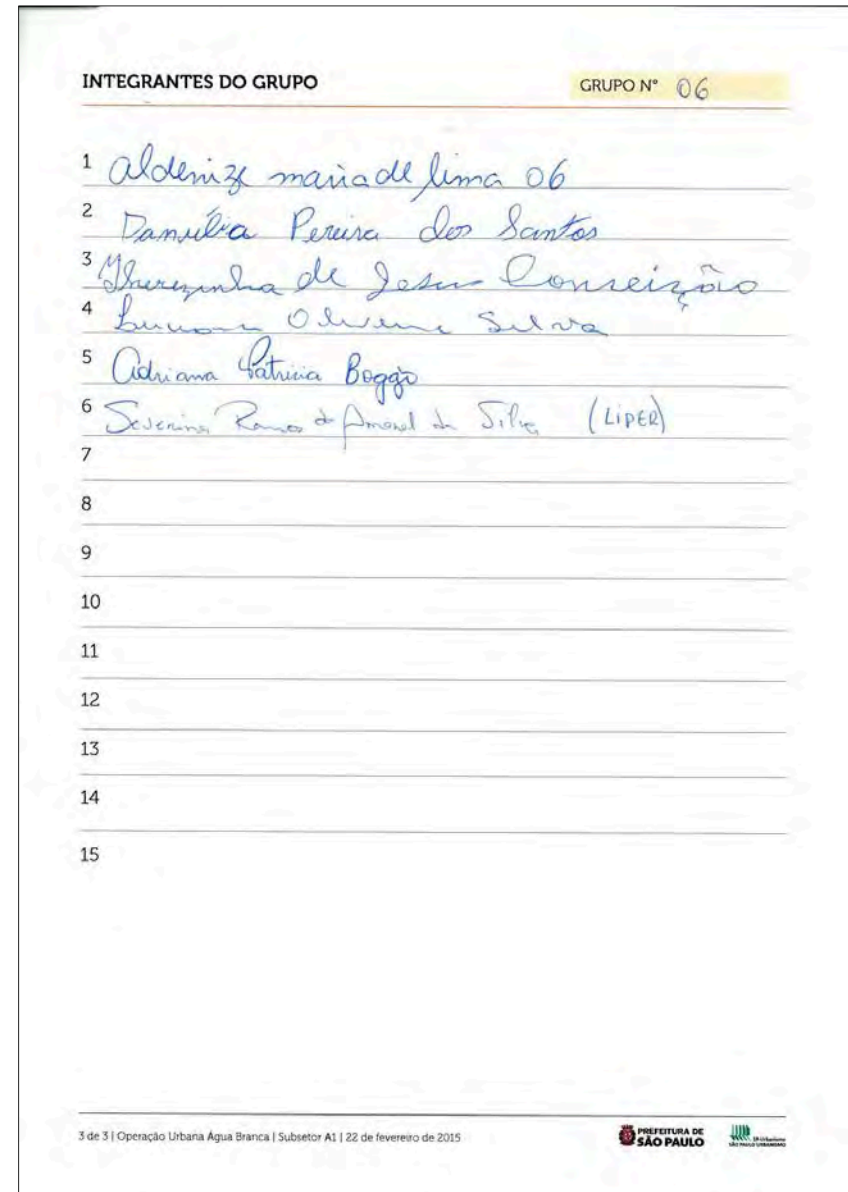 INTEGRANTES DO GRUPO
GRUPO Nº 06
1 Aldenize maria de lima 06
2 Danúbia Pereira dos Santos
3 Therezinha de Jesus Conceição
4 Oliveira Silva
5 Adriana Patricia Boggio
6 Severina Ramos do Amaral da Silva (LIPER)
7
8
9
10
11
12
13
14
15
3 de 3 | Operação Urbana Água Branca | Subsetor A1 | 22 de fevereiro de 2015
PREFEITURA DE
SÃO PAULO
SP Urbanismo
SÃO PAULO URBANISMO